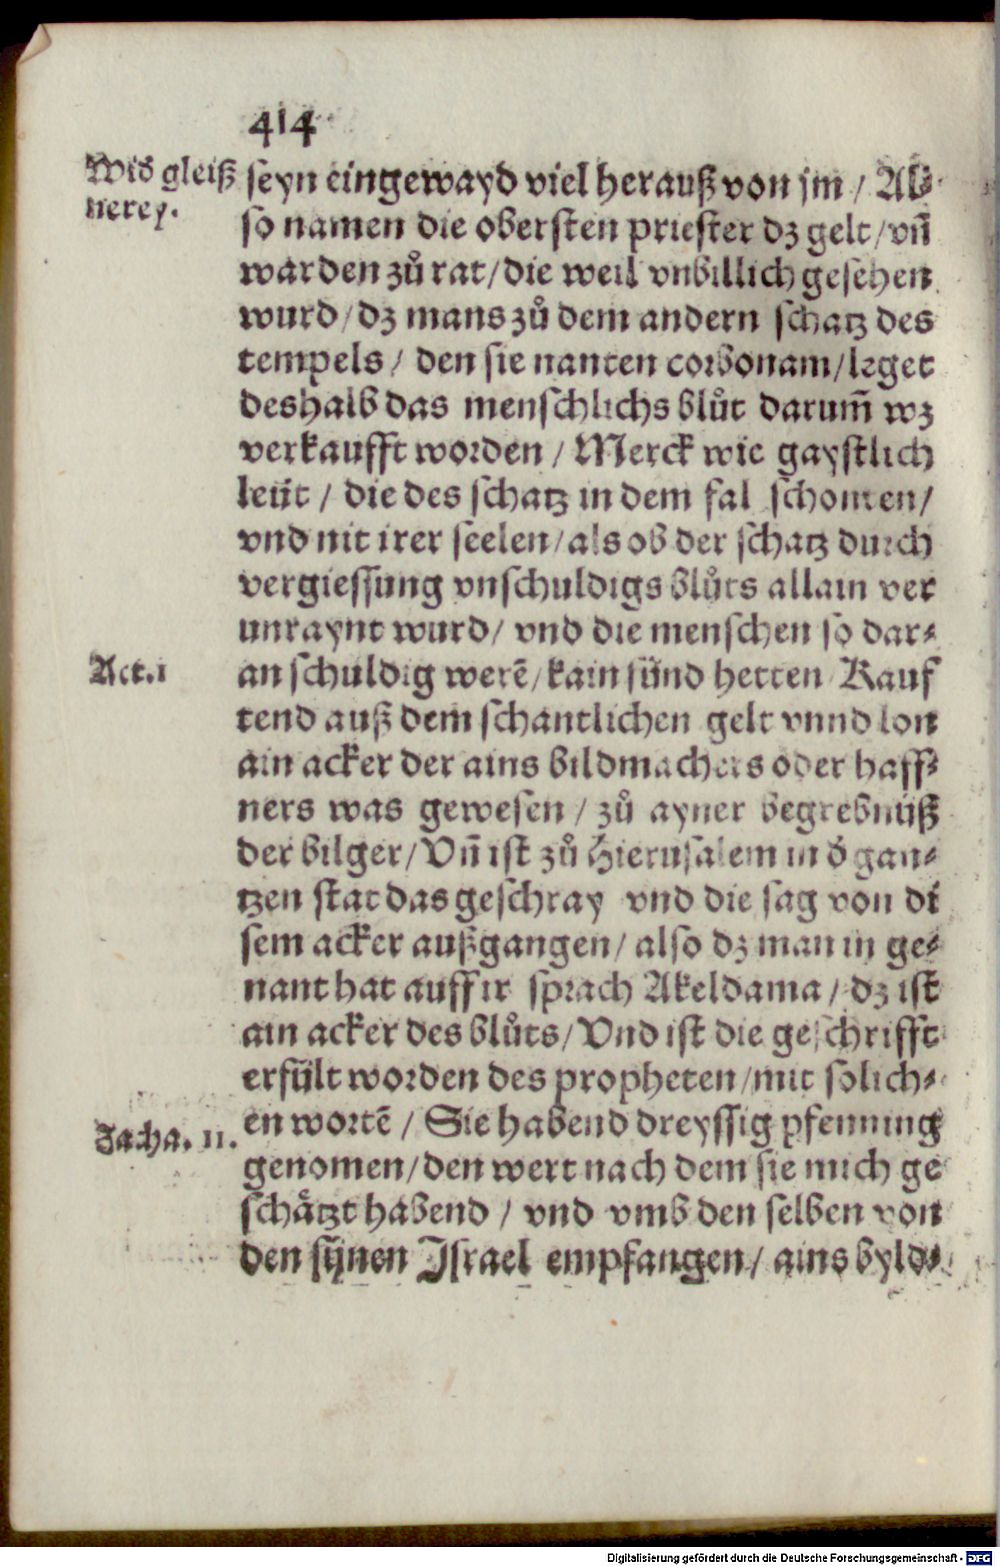 414
Wid gleiß
nerey.
seyn eingewayd viel herauß von jm / Al⸗
so namen die obersten priester dz gelt / vñ
warden zů rat / die weil vnbillich gesehen
wurd / dz mans zů dem andern schatz des
tempels / den sie nanten corbonam / leget
deshalb das menschlichs blůt darum̃ wz
verkaufft worden / Merck wie gaystlich
leüt / die des schatz in dem fal schonten /
vnd nit irer seelen / als ob der schatz durch
vergiessung vnschuldigs blůts allain ver
unraynt wurd / vnd die menschen so dar⸗
Act. 1
an schuldig werẽ / kain sünd hetten Kauf
tend auß dem schantlichen gelt vnnd lon
ain acker der ains bildmachers oder haff⸗
ners was gewesen / zů ayner begrebnüß
der bilger / Vñ ist zů Hierusalem in d̕ gan⸗
tzen stat das geschray vnd die sag von di
sem acker außgangen / also dz man in ge⸗
nant hat auff ir sprach Akeldama / dz ist
ain acker des blůts / Vnd ist die geschrifft
erfült worden des propheten / mit solich⸗
Zacha. 11.
en wortẽ / Sie habend dreyssig pfenning
genomen / den wert nach dem sie mich ge
schätzt habend / vnd vmb den selben von
den sünen Israel empfangen / ains byld⸗
Digitalisierung gefördert durch die Deutsche Forschungsgemeinschaft - DFG